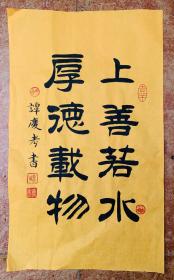 上善若水
厚德載物
譚慶考書